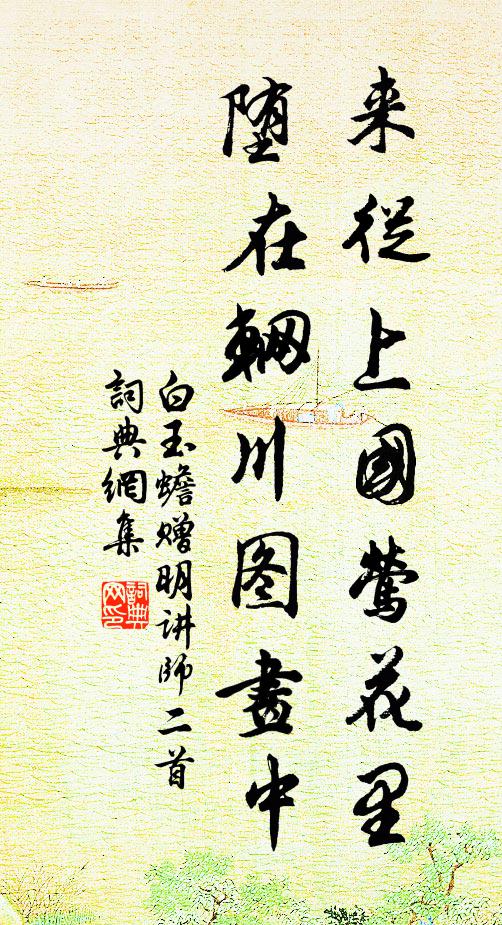 来從上國莺花里
堕在輞川图畫中
白玉蟾赠明讲师二首
詞典網集
詞典
网印